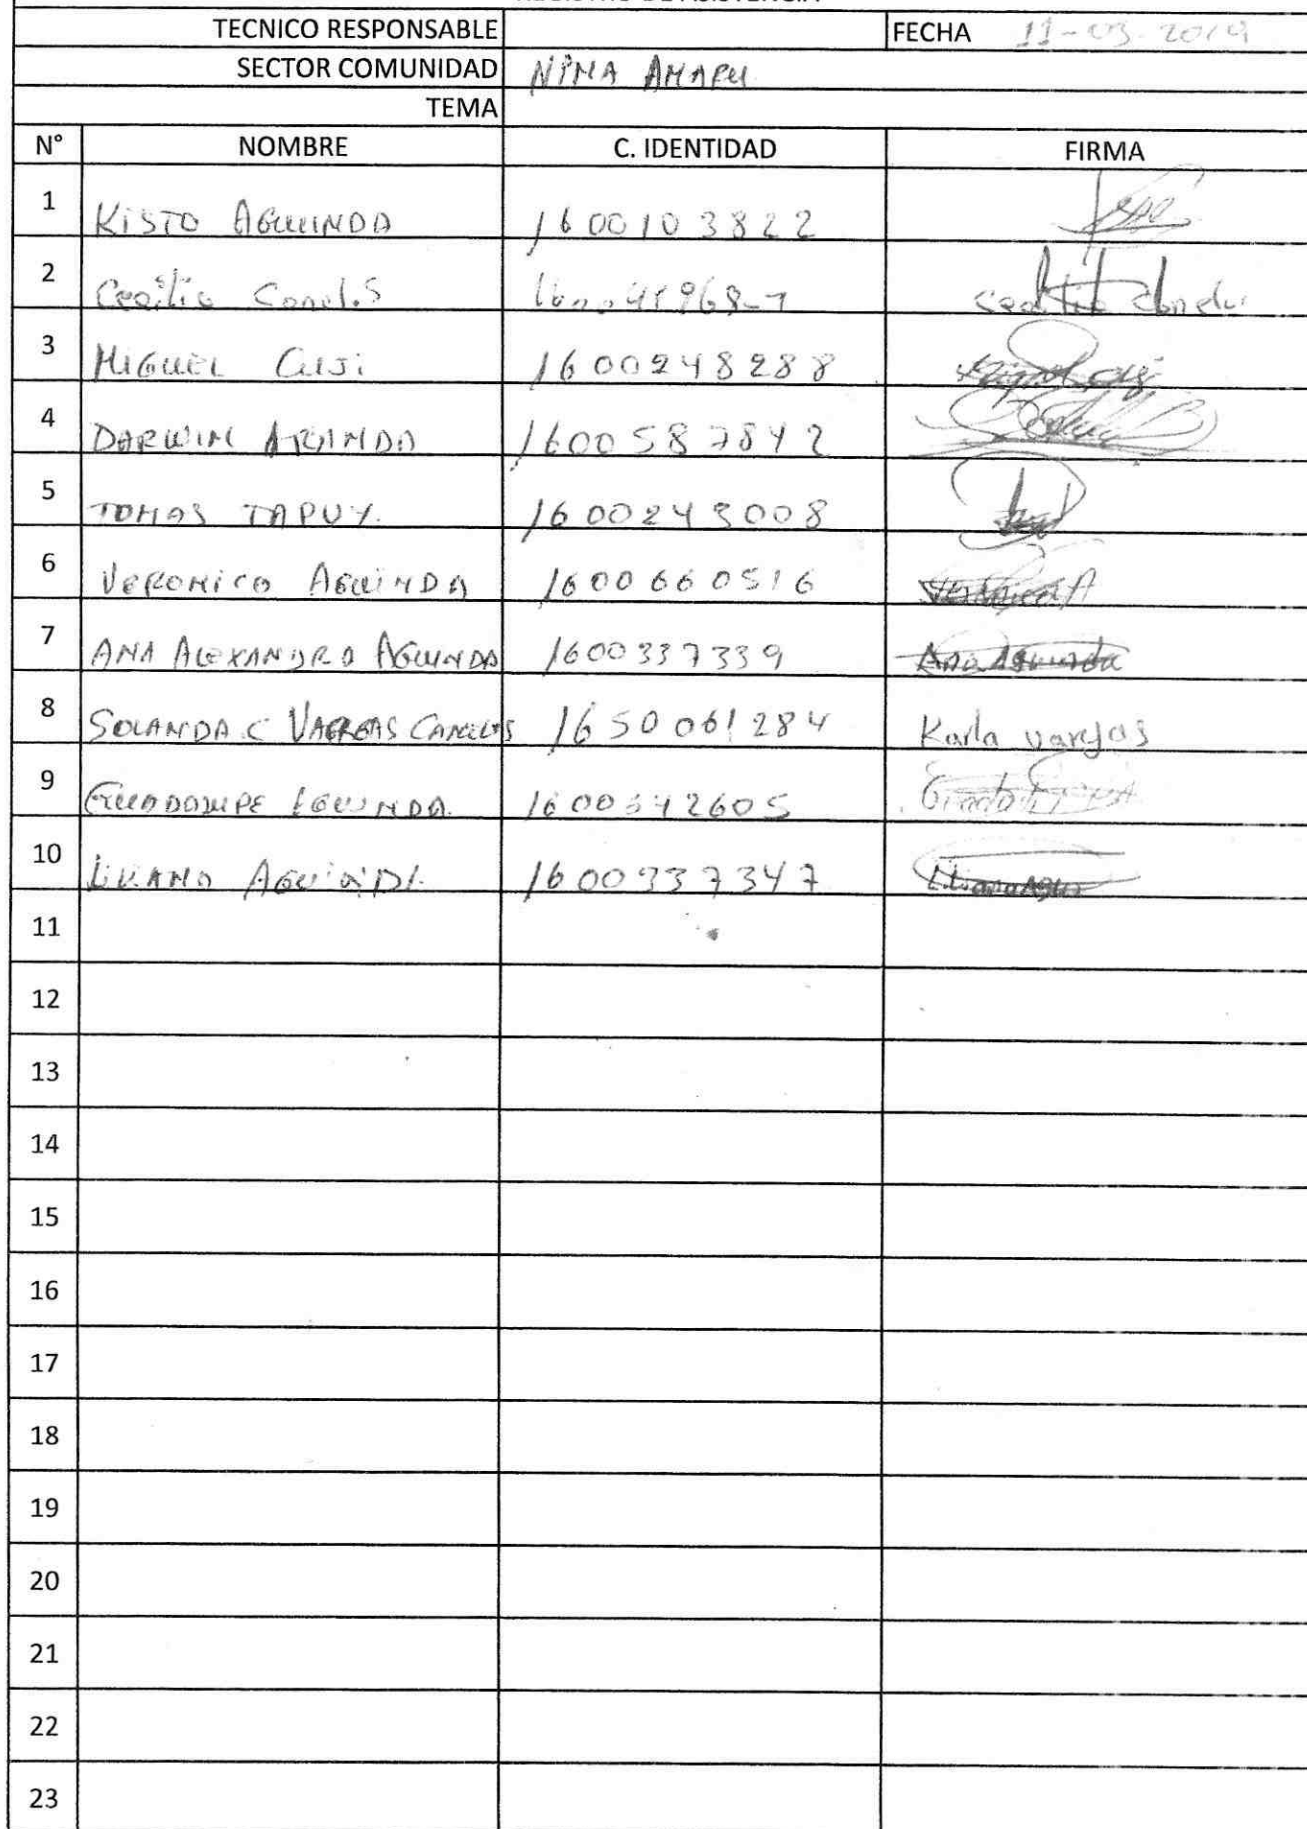 TECNICO RESPONSABLE FECHA 11-03-2019
SECTOR COMUNIDAD NINA AMARU
TEMA
N° NOMBRE C. IDENTIDAD FIRMA
1 KISTO AGUINDA 1600103822
2 Cecilia
3 MIGUEL CUJI 1600248288
4 DARWIN ARANDA 1600587842
5 TOMAS TAPUY. 1600243008
6 VERONICA AGUINDA 1600660516
7 ANA ALEXANDRA AGUINDA 1600337339 Ana Aguinda
8 SOLANDA C VARGAS CANELOS 1650061284 Karla vargas
9 GUADALUPE AGUINDA.
10 LILIANA AGUINDA 1600337347
11
12
13
14
15
16
17
18
19
20
21
22
23